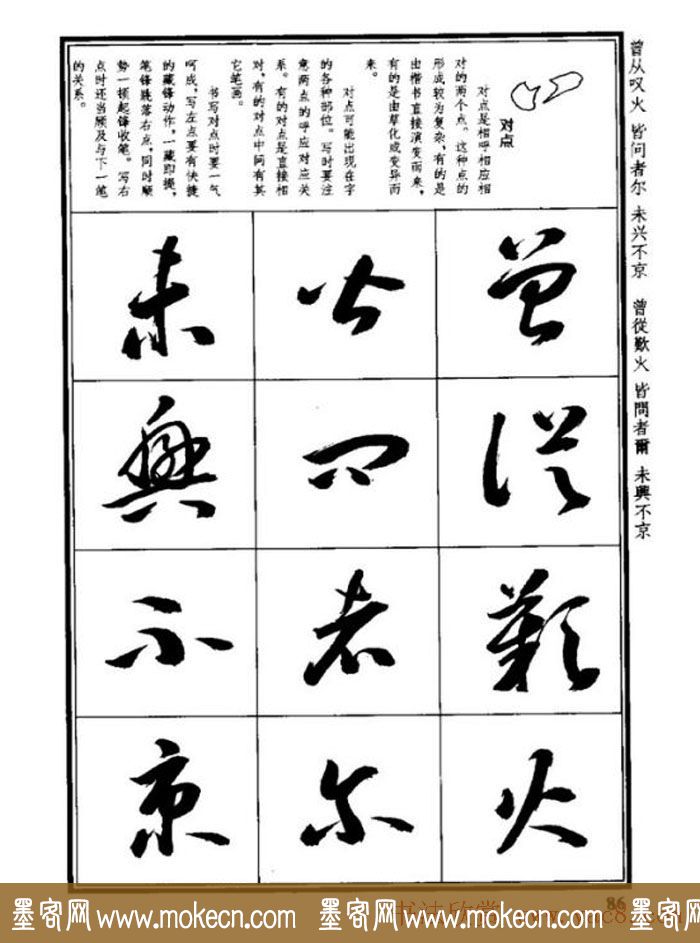 曾从叹火 皆问者尔 未兴不京 曾從歎火 皆問者爾 未興不京
对点
对点是相呼相应相
对的两个点。这种点的
形成较为复杂,有的是
由楷书直接演变而来,
有的是由草化或变异而
来。
对点可能出现在字
的各种部位。写时要注
意两点的呼应对应关
系。有的对点是直接相
对,有的对点中间有其
它笔画。
书写对点时要一气
呵成,写左点要有快捷
的藏锋动作,一藏即提,
笔锋跳落右点,同时顺
势一顿起锋收笔。写右
点时还当顾及与下一笔
的关系。
曾從歎火
皆問者爾
未興不京
86
书法欣赏
墨客网www.mokecn.com 墨客网www.mokecn.com